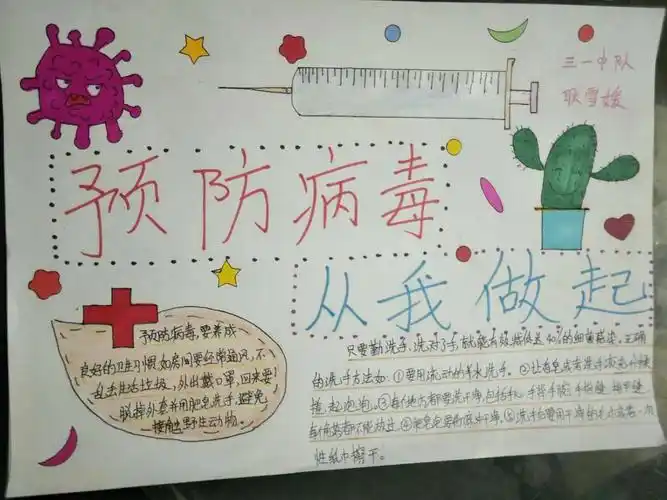 三一中队
耿雪媛
预防病毒
从我做起
预防病毒,要养成
良好的卫生习惯,如房间要经常通风,不
乱丢生活垃圾,外出戴口罩,回来要
脱掉外套并用肥皂洗手,避免
接触野生动物。
只要勤洗手,洗对了手,就能有效降低近40%的细菌感染。正确
的洗手方法如:①要用流动的 水洗手。②让肥皂或者洗手液充分揉
搓,起泡泡。③每个地方都要洗干净,包括 手背 手腕 手指缝 指甲缝
每个 都不能放过。④肥皂 要彻底冲干净。⑤洗手后要用干净的毛巾或者一次
性纸巾擦干。